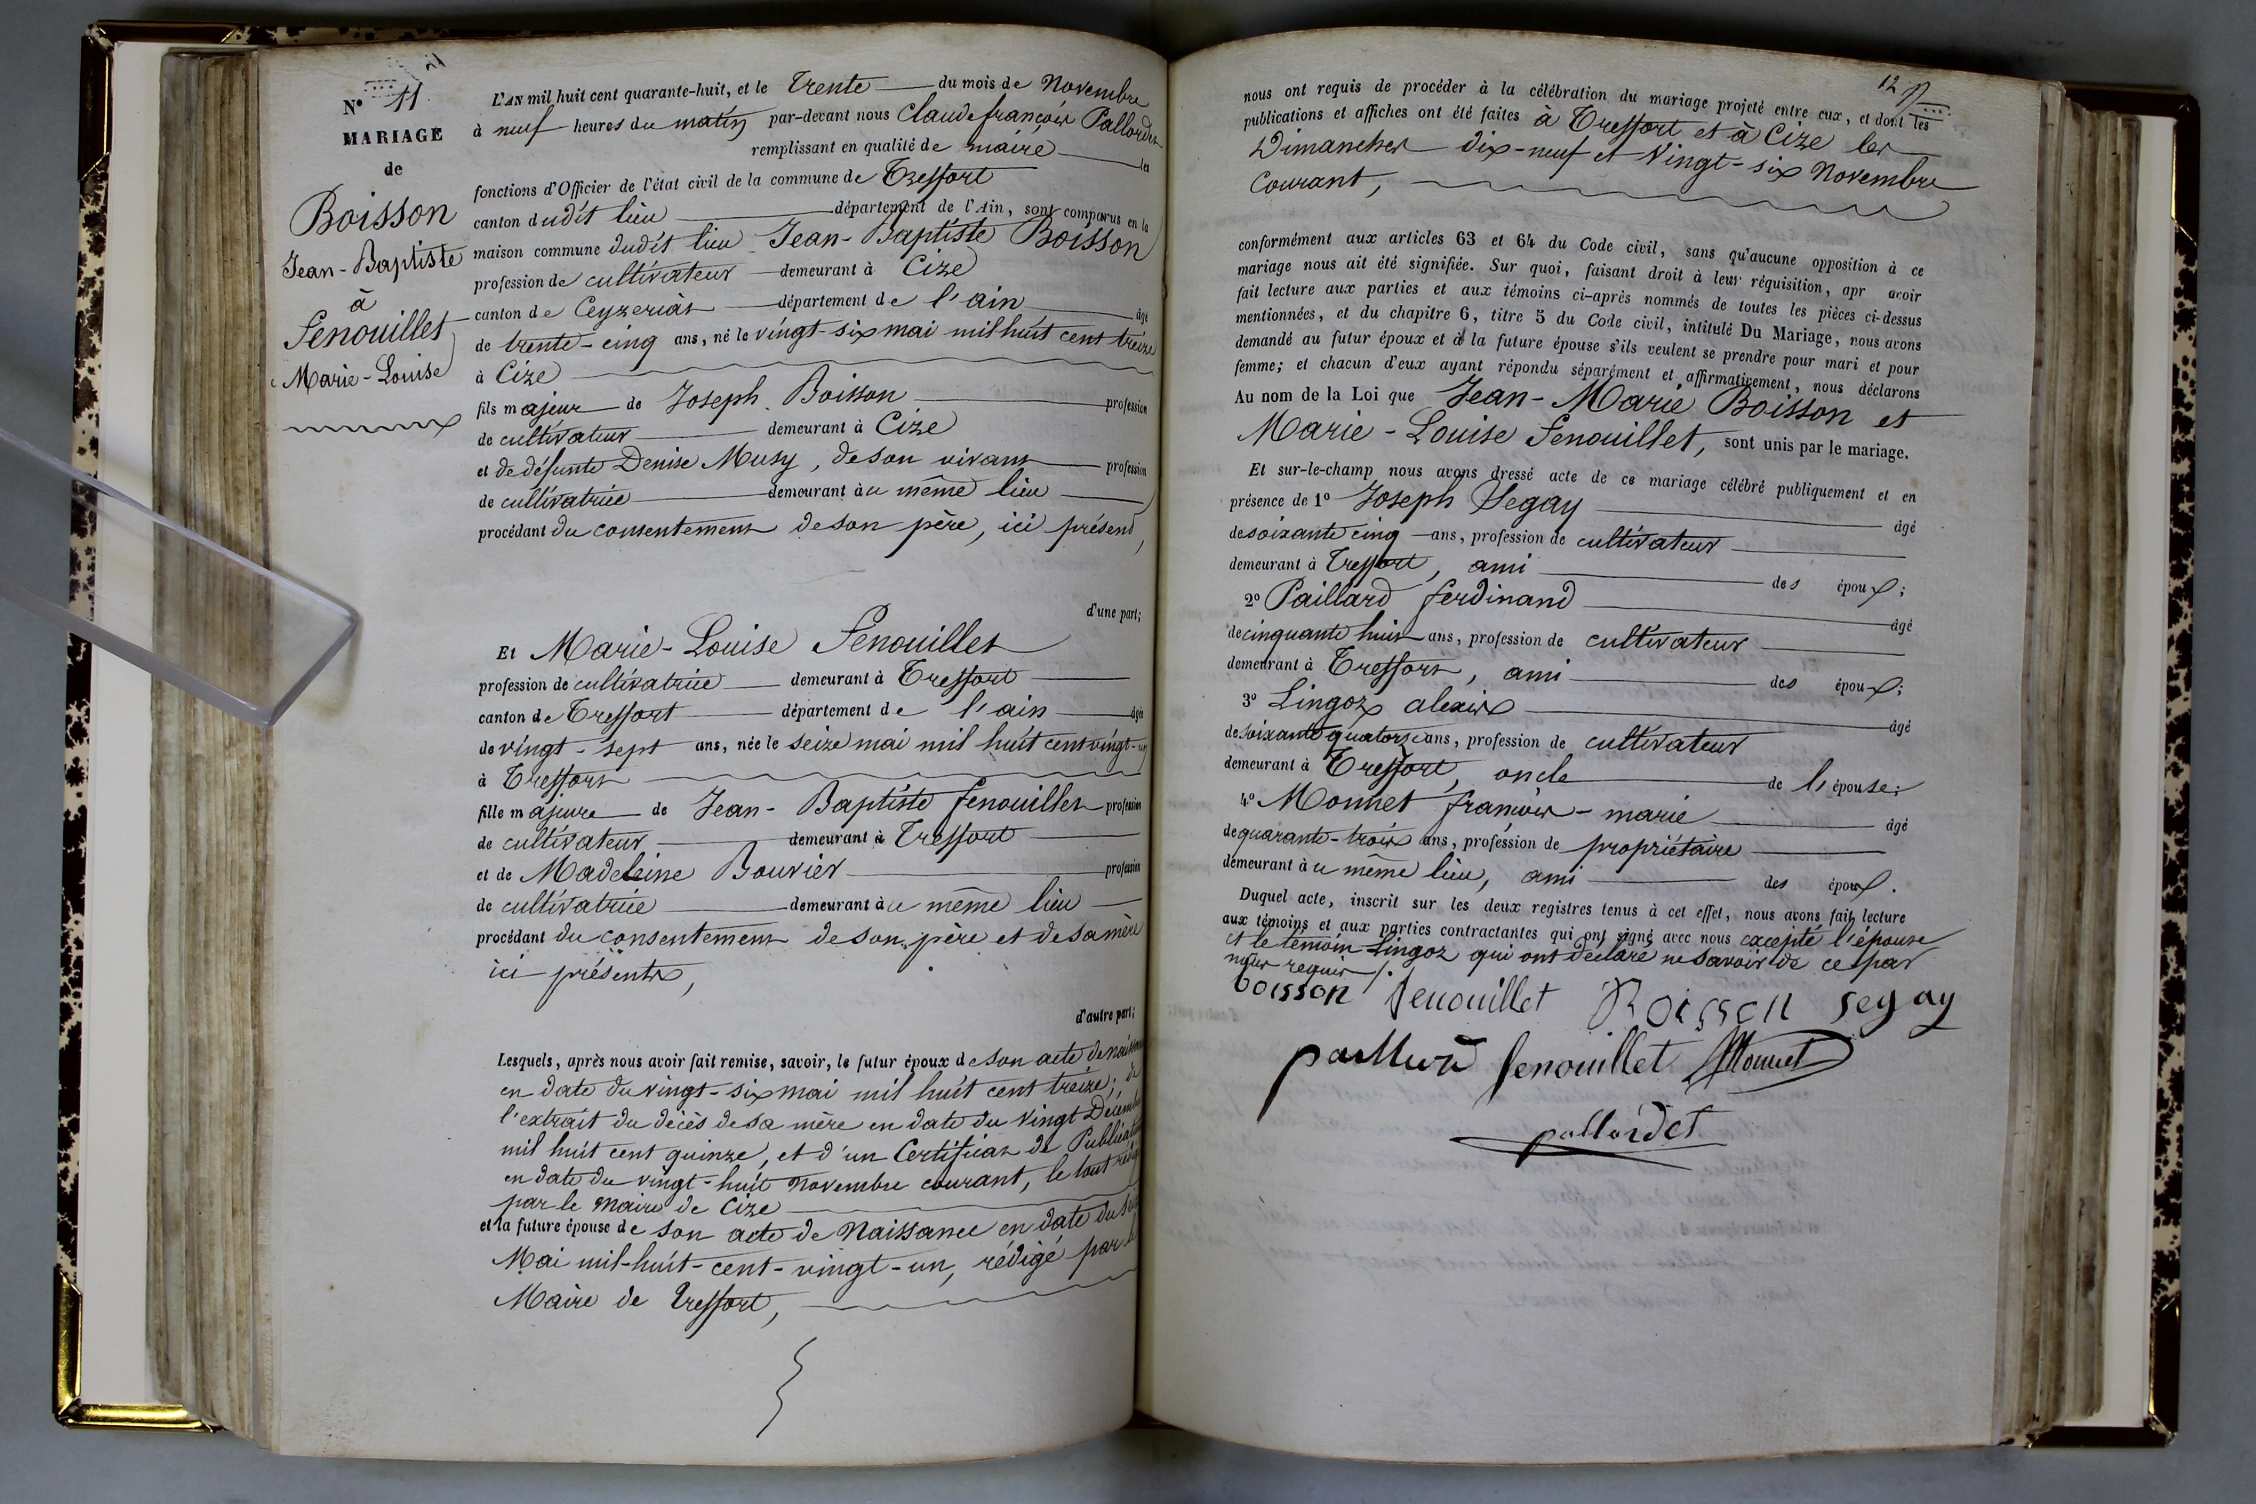 N° 11
MARIAGE
de
Boisson
Jean-Baptiste
à
Fenouillet
Marie-Louise
L'AN mil huit cent quarante-huit, et le Trente du mois de Novembre
à neuf heures du matin par-devant nous Claude françois Pallordet
remplissant en qualité de maire les
fonctions d'Officier de l'état civil de la commune de Treffort
canton dudit lieu département de l'Ain, sont comparus en la
maison commune dudit lieu Jean-Baptiste Boisson
profession de cultivateur demeurant à Cize
canton de Ceyzeriàt département de l'ain âgé
de trente-cinq ans, né le vingt-six mai mil huit cent treize
à Cize
fils majeur de Joseph Boisson profession
de cultivateur demeurant à Cize
et de défunte Denise Musy, de son vivant profession
de cultivatrice demeurant au même lieu
procédant du consentement de son père, ici présent,
d'une part;
Et Marie-Louise Fenouillet
profession de cultivatrice demeurant à Treffort
canton de Treffort département de l'ain âgée
de vingt-sept ans, née le seize mai mil huit cent vingt-un
à Treffort
fille majeure de Jean-Baptiste fenouillet profession
de cultivateur demeurant à Treffort
et de Madeleine Bouvier profession
de cultivatrice demeurant au même lieu
procédant du consentement de son père et de sa mère
ici présents,
d'autre part;
Lesquels, après nous avoir fait remise, savoir, le futur époux de son acte de naissance
en date du vingt-six mai mil huit cent treize; de
l'extrait du décès de sa mère en date du vingt Décembre
mil huit cent quinze, et d'un Certificat de Publication
en date du vingt-huit Novembre courant, le tout rédigé
par le Maire de Cize
et la future épouse de son acte de Naissance en date du seize
Mai mil-huit-cent-vingt-un, rédigé par le
Maire de Treffort,
12
nous ont requis de procéder à la célébration du mariage projeté entre eux, et dont les
publications et affiches ont été faites à Treffort et à Cize les
Dimanches dix-neuf et Vingt-six Novembre
Courant,
conformément aux articles 63 et 64 du Code civil, sans qu'aucune opposition à ce
mariage nous ait été signifiée. Sur quoi, faisant droit à leur réquisition, apr avoir
fait lecture aux parties et aux témoins ci-après nommés de toutes les pièces ci-dessus
mentionnées, et du chapitre 6, titre 5 du Code civil, intitulé Du Mariage, nous avons
demandé au futur époux et à la future épouse s'ils veulent se prendre pour mari et pour
femme; et chacun d'eux ayant répondu séparément et affirmativement, nous déclarons
Au nom de la Loi que Jean-Marie Boisson et
Marie-Louise Fenouillet, sont unis par le mariage.
Et sur-le-champ nous avons dressé acte de ce mariage célébré publiquement et en
présence de 1° Joseph Segay âgé
de soixante cinq ans, profession de cultivateur
demeurant à Treffort, ami des époux;
2° Paillard ferdinand âgé
de cinquante huit ans, profession de cultivateur
demeurant à Treffort, ami des époux;
3° Lingoz alexis âgé
de soixante quatorze ans, profession de cultivateur
demeurant à Treffort, oncle de l'épouse;
4° Monnet françois-marie âgé
de quarante-trois ans, profession de propriétaire
demeurant au même lieu, ami des époux.
Duquel acte, inscrit sur les deux registres tenus à cet effet, nous avons fait lecture
aux témoins et aux parties contractantes qui ont signé avec nous excepté l'épouse
et le témoin Lingoz qui ont déclaré ne savoir de ce par
nous requis /.
boisson fenouillet Boisson segay
paillard fenouillet Monnet
pallordet